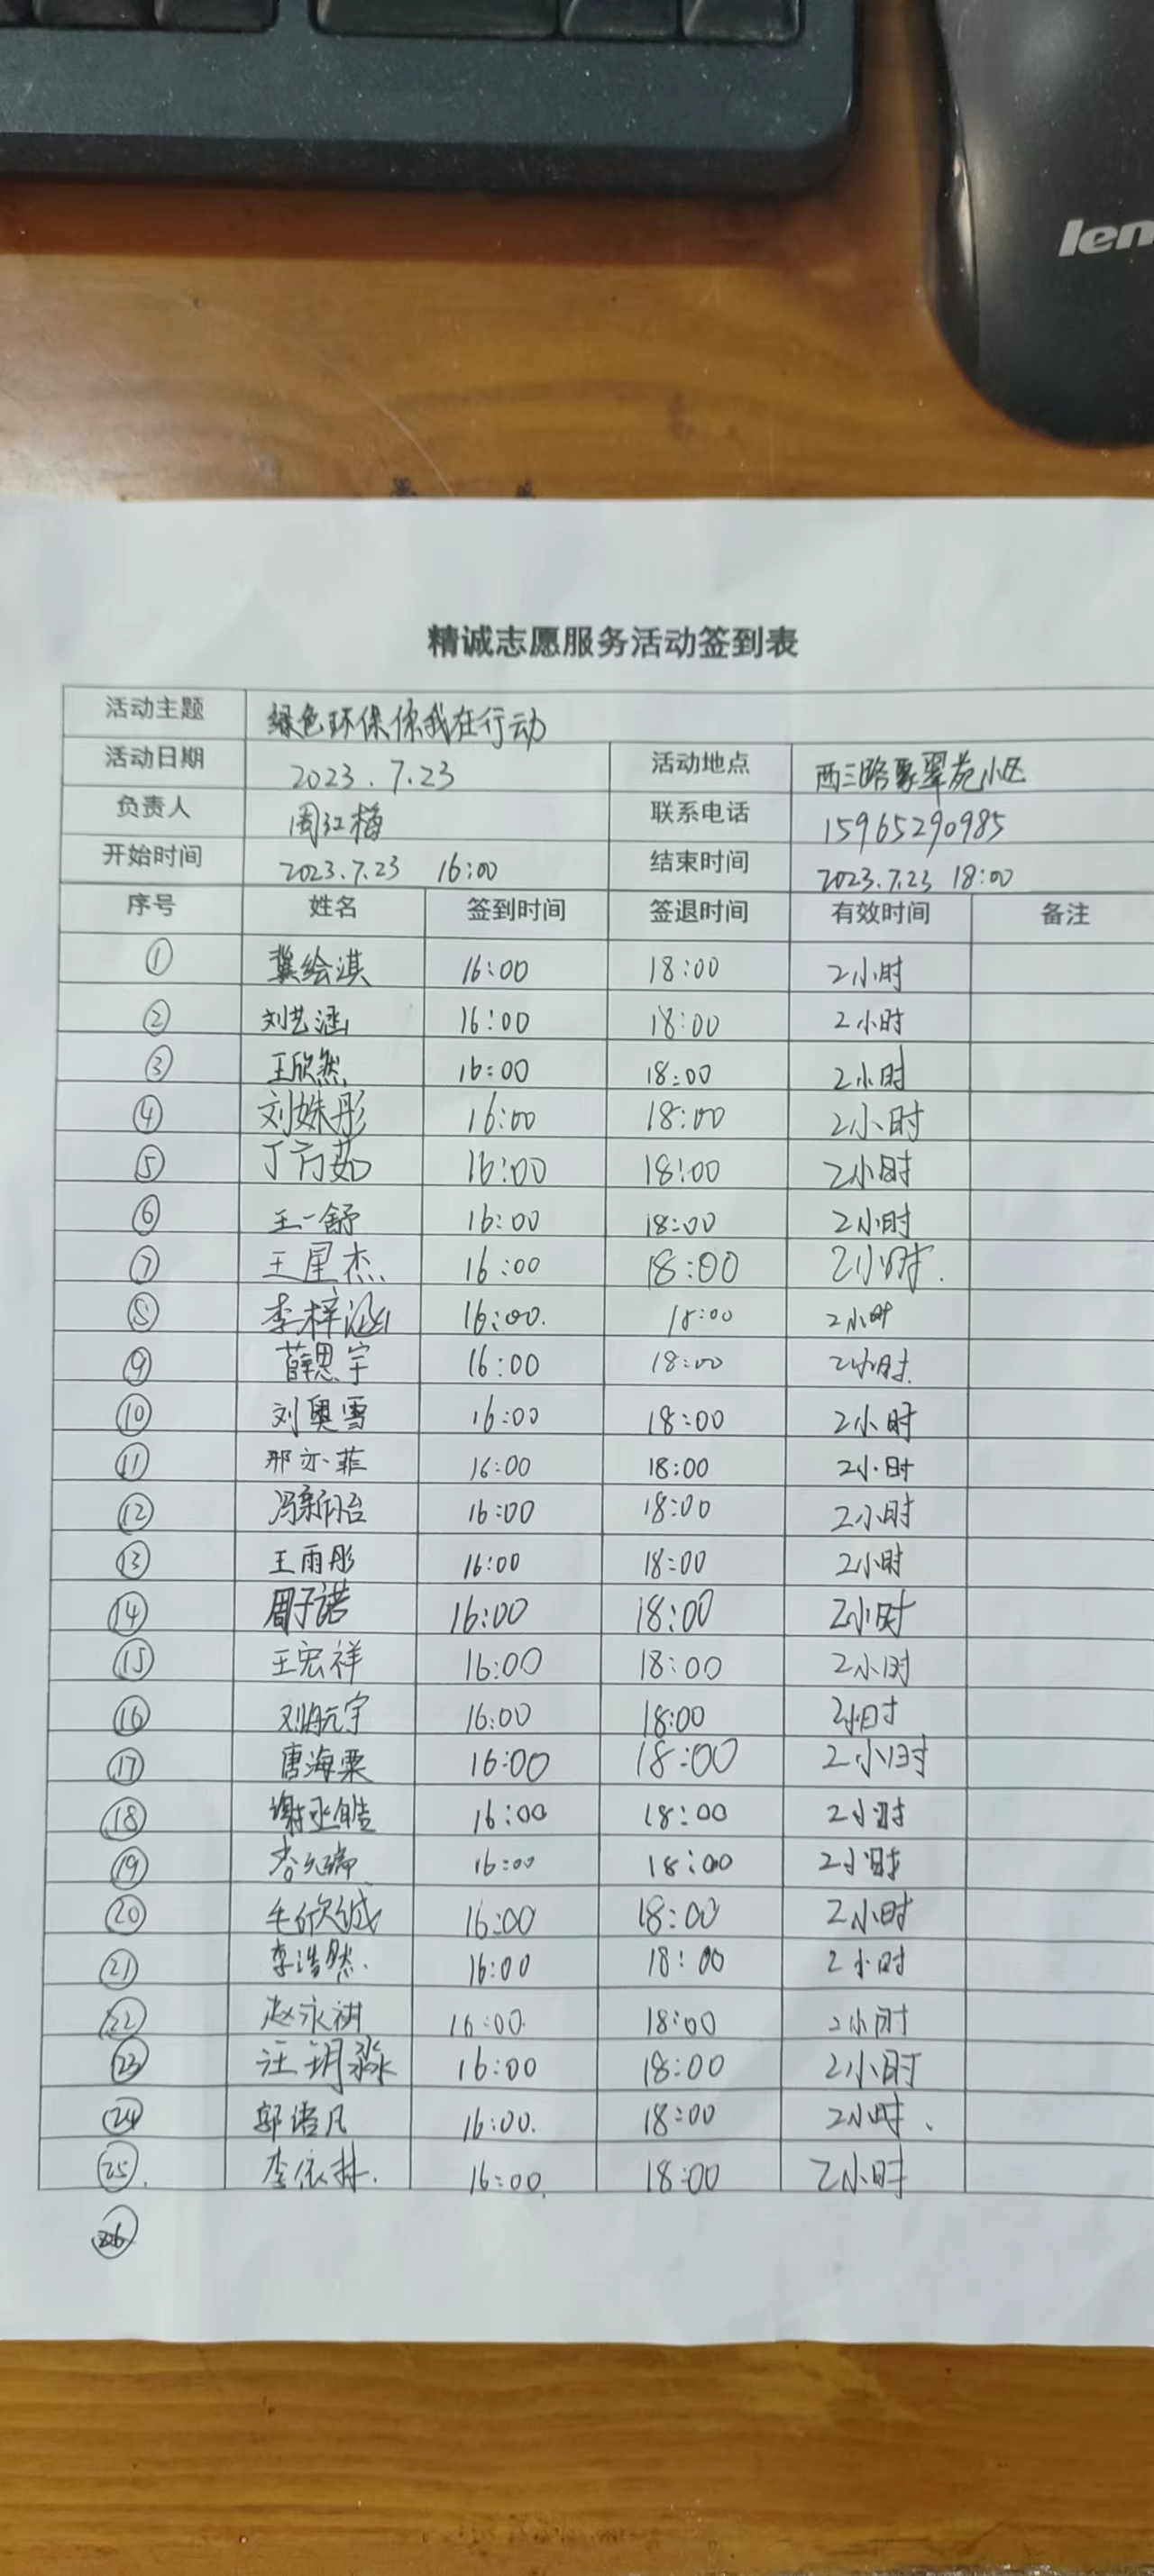 len
精诚志愿服务活动签到表
活动主题 绿色环保你我在行动
活动日期 2023.7.23 活动地点 西三路聚翠苑小区
负责人 周红梅 联系电话 15965290985
开始时间 2023.7.23 16:00 结束时间 2023.7.23 18:00
序号 姓名 签到时间 签退时间 有效时间 备注
① 冀绘淇 16:00 18:00 2小时
② 刘艺涵 16:00 18:00 2小时
③ 王欣然 16:00 18:00 2小时
④ 刘姝彤 16:00 18:00 2小时
⑤ 丁方茹 16:00 18:00 2小时
⑥ 王一舒 16:00 18:00 2小时
⑦ 王星杰 16:00 18:00 2小时.
⑧ 李梓涵 16:00. 18:00 2小时
⑨ 薛思宇 16:00 18:00 2小时.
⑩ 刘奥雪 16:00 18:00 2小时
⑪ 邢亦菲 16:00 18:00 2小时
⑫ 冯新怡 16:00 18:00 2小时
⑬ 王雨彤 16:00 18:00 2小时
⑭ 周子诺 16:00 18:00 2小时
⑮ 王宏祥 16:00 18:00 2小时
⑯ 刘航宇 16:00 18:00 2小时
⑰ 唐海粟 16:00 18:00 2小时
⑱ 谢丞皓 16:00 18:00 2小时
⑲ 16:00 18:00 2小时
⑳ 毛欣诚 16:00 18:00 2小时
㉑ 李浩然. 16:00 18:00 2小时
㉒ 赵永祺 16:00 18:00 2小时
㉓ 汪玥淼 16:00 18:00 2小时
㉔ 郭语凡 16:00. 18:00 2小时.
㉕. 李依林. 16:00. 18:00 2小时
㉖